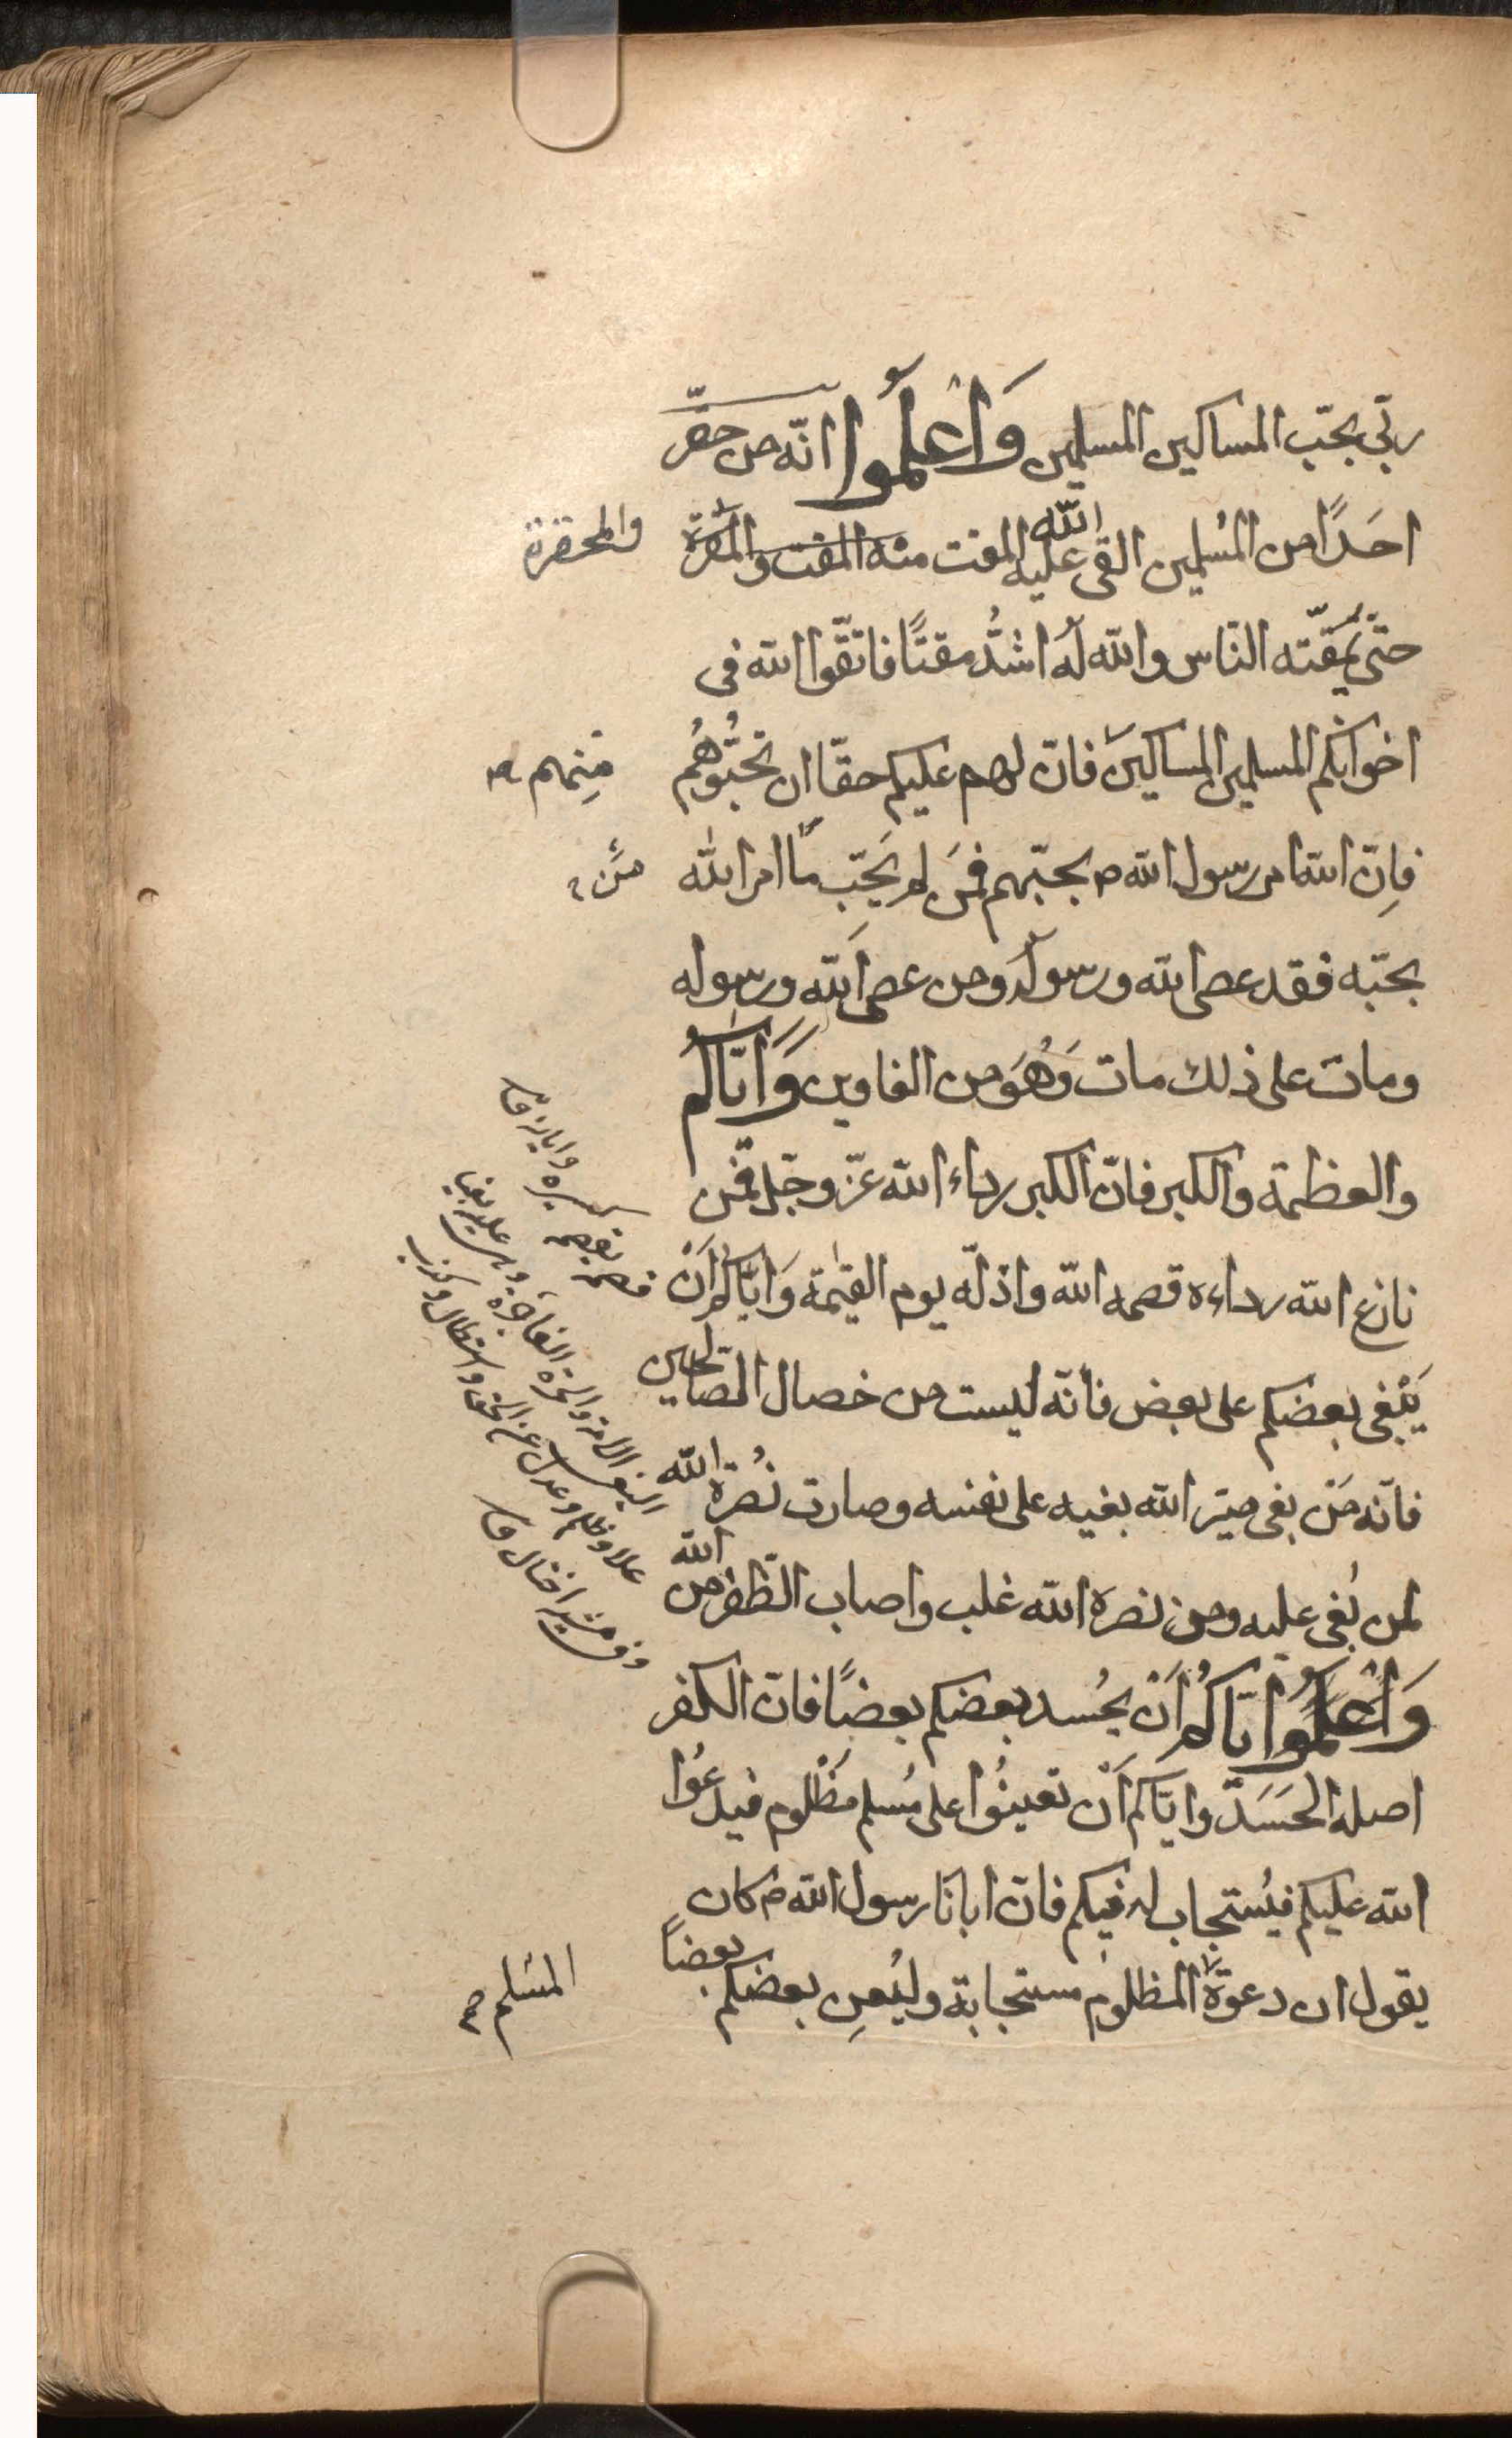 ربّى بحبّ المساكين المسلمين وَاعْلَمُوا انّه من حقّر
احَدًا من المسُلمين القى الله عليه المقت منه المقت والمَقرة والمحقرة
حتّى يَمقُته النّاس والله لَهُ اشدُّ مقتًا فاتّقوا الله فى
اخوانكم المسلمين المساكينَ فانّ لهم عليكم حقّا ان تحبُّوهُم منهم
فاِنّ الله امر رسول الله ص بحبّهم فمَن لم يُحَبّ ما امر الله مَن
بحبّه فقد عصى الله ورسولَه ومن عصى اَلله ورسوله
ومات على ذلك مات وَهُوَ من الغاوين وَاِيّاكُم
والعظمة والكبر فانّ الكبر رداء الله عزّ وجّل فمَن
نازع الله رداءه قصمه الله واذلّه يوم القيٰمة وَاِيّاكُم اَنْ
يَبْغى بعضكم على بعض فانّه ليست من خصال الصّالحين
فانّه مَنْ بغى صيّر الله بغيه على نفسه وصارت نُصْرة الله
لمن بُغى عليه ومن نصره الله غلب واصاب الظّفر من الله
وَاعْلَمُوا ايّاكُم اَنْ يحُسد بعضكم بعضًا فانّ الكفر
اصله الحَسَدّ وايّاكم اَنْ تعينُوا على مُسلم مظْلوم فيدعُوا
الله عليكم فيُستجاب له فيكم فانّ ابانا رسول الله ص كان
يقول ان دعوةَ المظلوم مستجابة وليُعِن بعضكم بعضاً المسُلم
قصمه